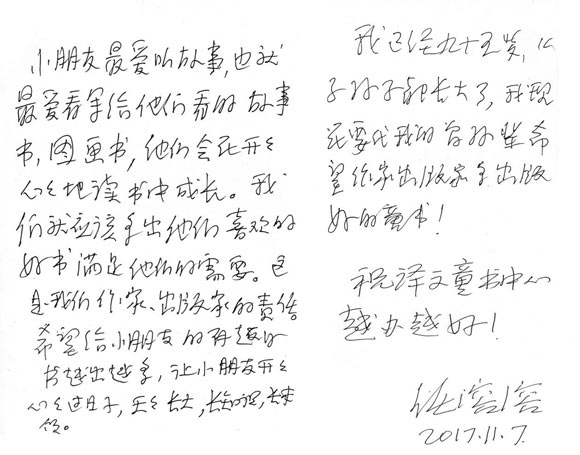 小朋友最爱听故事，也就
最爱看写给他们看的故事
书，图画书，他们会在开开
心心地读书中成长。我
们就应该多出他们喜欢的
好书满足他们的需要。这
是我们作家、出版家的责任
希望给小朋友的有趣的
书越出越多，让小朋友开开
心心过日子，天天长大，长知识，长本
领。
我已经九十五岁，儿
子孙子都长大了，我现
在要代我的曾孙辈希
望作家出版家多出版
好的童书！
祝译文童书中心
越办越好！
任溶溶
2017.11.7.